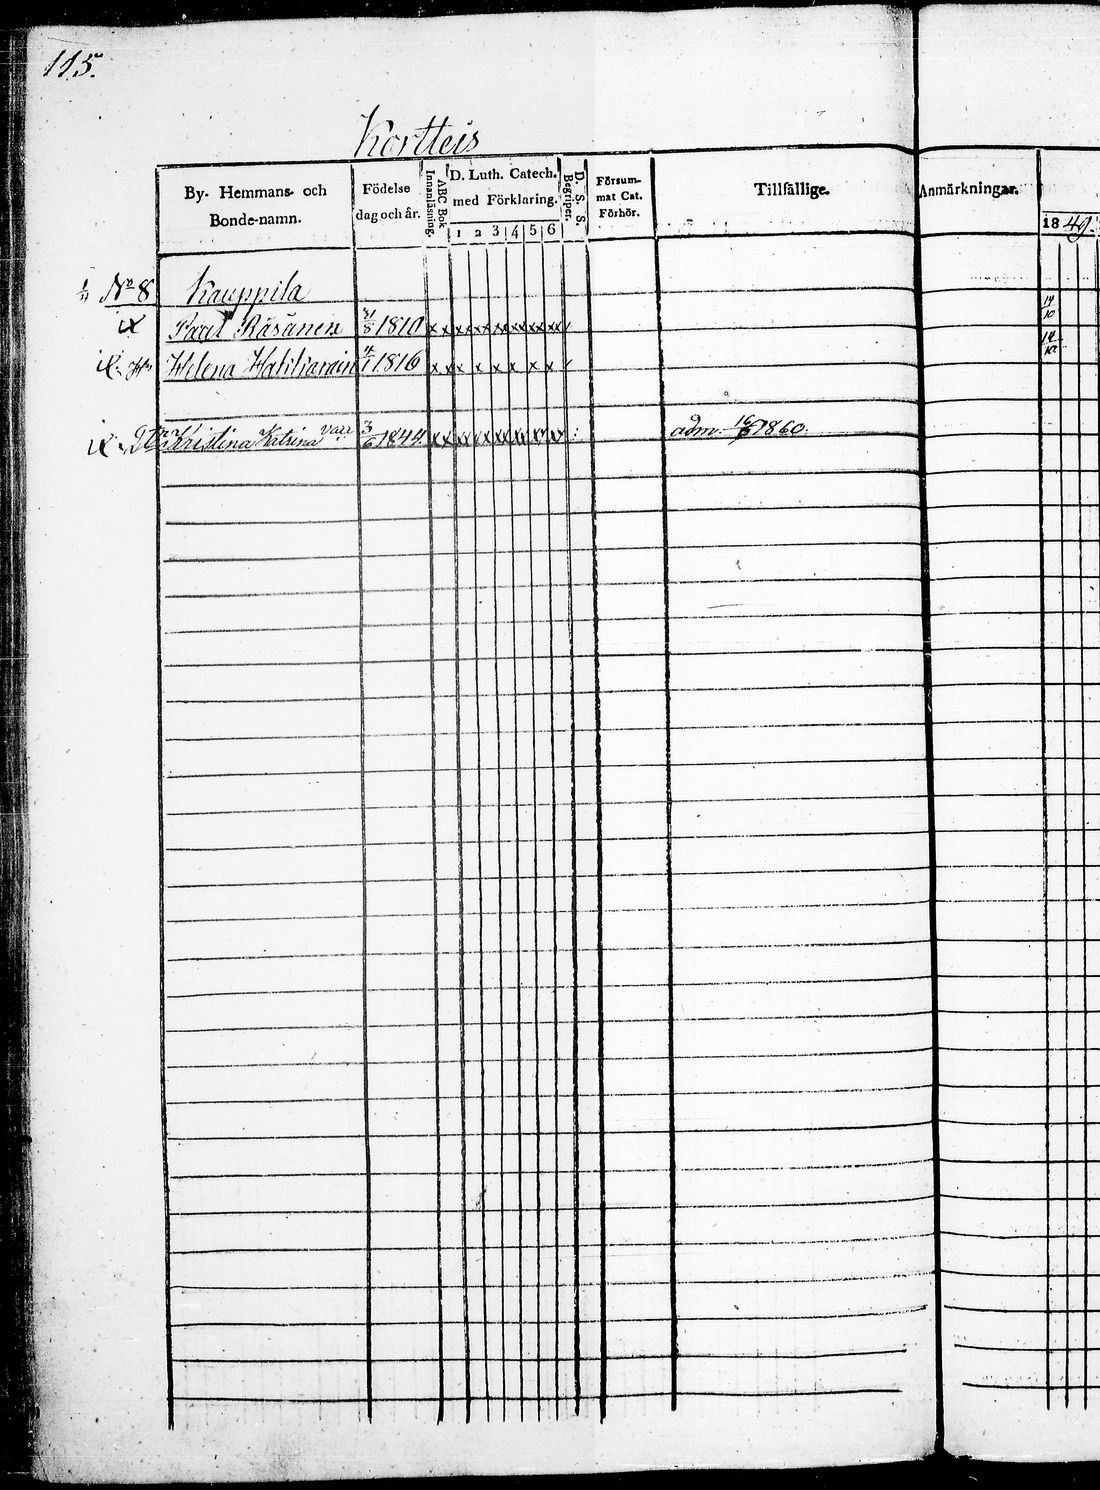 115.
Kortteis
By- Hemmans- och Bonde-namn.
Födelse dag och år.
ABC Bok Innanläsning.
D. Luth. Catech. med Förklaring.
1 2 3 4 5 6
D. S. S. Begriper.
Försummat Cat. Förhör.
Tillfällige.
Anmärkningar.
1849.
No 8 Kauppila
Paul Räsänen 31/8 1810 14/10
Helena Hakkarain 4/1 1816 14/10
Kristina Katrina 3/6 1844 adm. 1860.